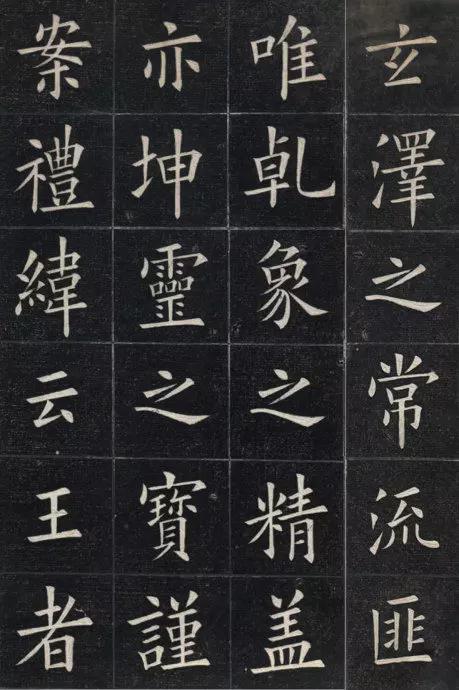 玄澤之常流匪
唯乹象之精盖
亦坤靈之寶謹
案禮緯云王者